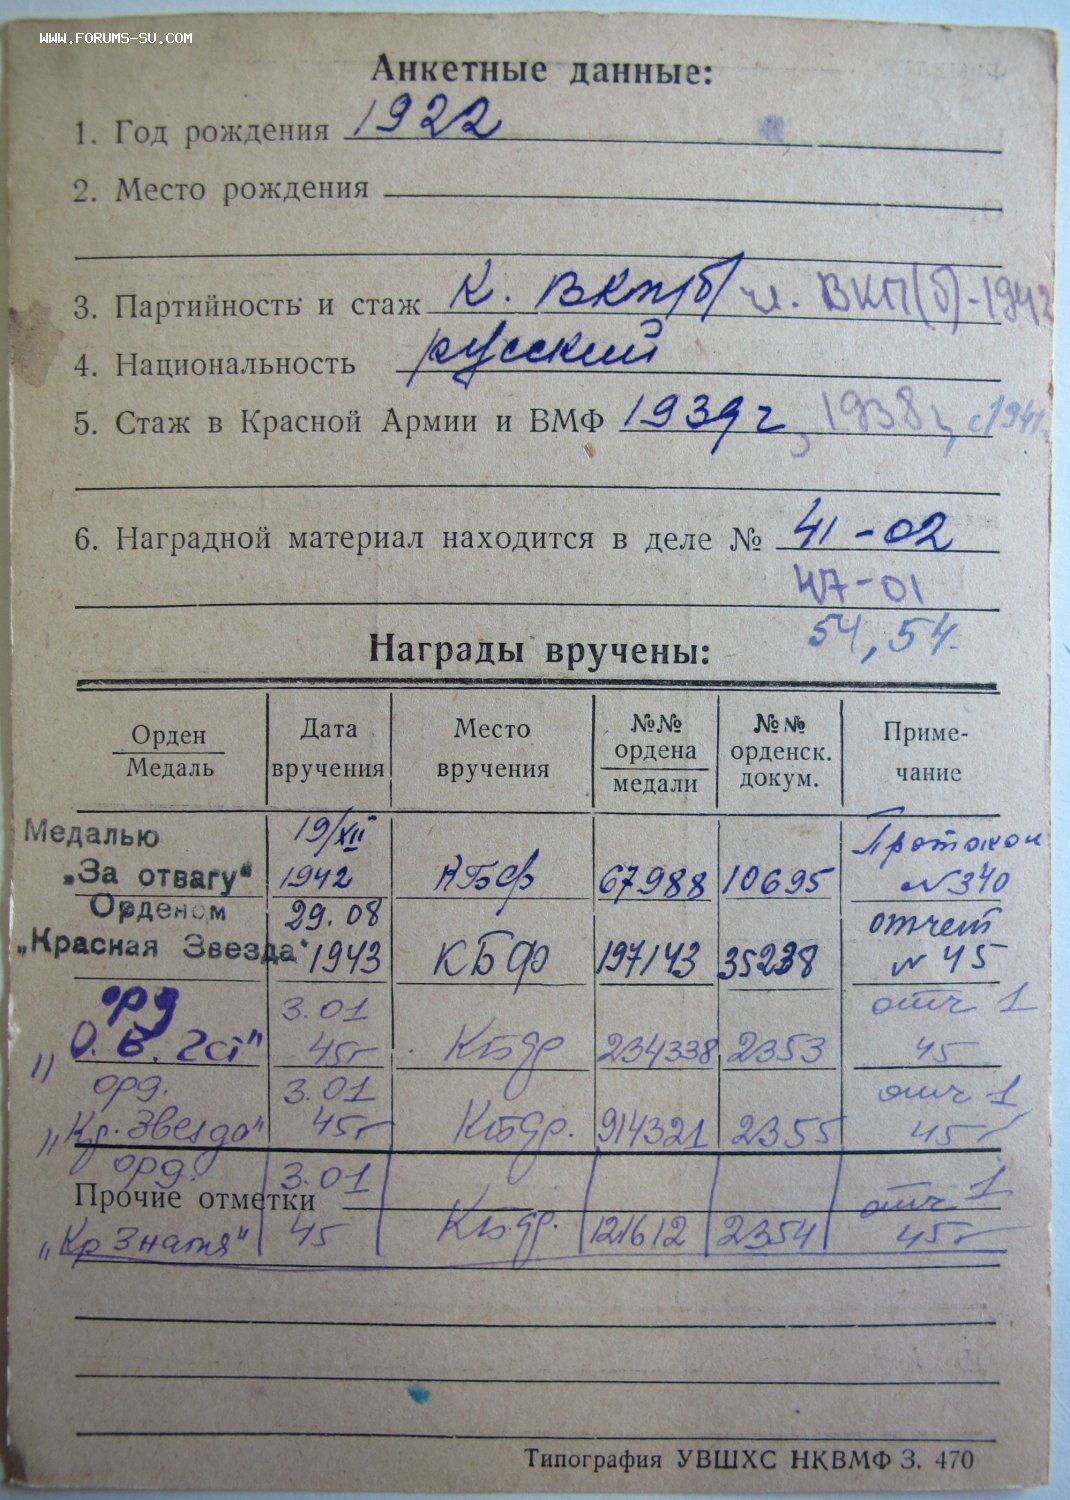 WWW.FORUMS-SU.COM
Анкетные данные:
1. Год рождения 1922
2. Место рождения
3. Партийность и стаж К. ВКП(б) ч. ВКП(б)-1943
4. Национальность русский
5. Стаж в Красной Армии и ВМФ 1939 г, 1938, с 1941
6. Наградной материал находится в деле № 41-02
47-01
54, 54.
Награды вручены:
Орден Медаль Дата вручения Место вручения №№ ордена медали №№ орденск. докум. Приме- чание
Медалью „За отвагу" 19/XII 1942 КБФ 67988 10695 Протокол № 340
Орденом „Красная Звезда" 29.08 1943 КБФ 197143 35238 отчет № 45
орд „О.В. 2ст" 3.01 45г КБФ 234338 2353 отч 1 45
орд. „Кр. Звезда" 3.01 45г КБФ. 914321 2355 отч 1 45г
орд. „Кр Знамя" 3.01 45 КБФ. 121612 2354 отч 1 45г
Прочие отметки
Типография УВШХС НКВМФ З. 470